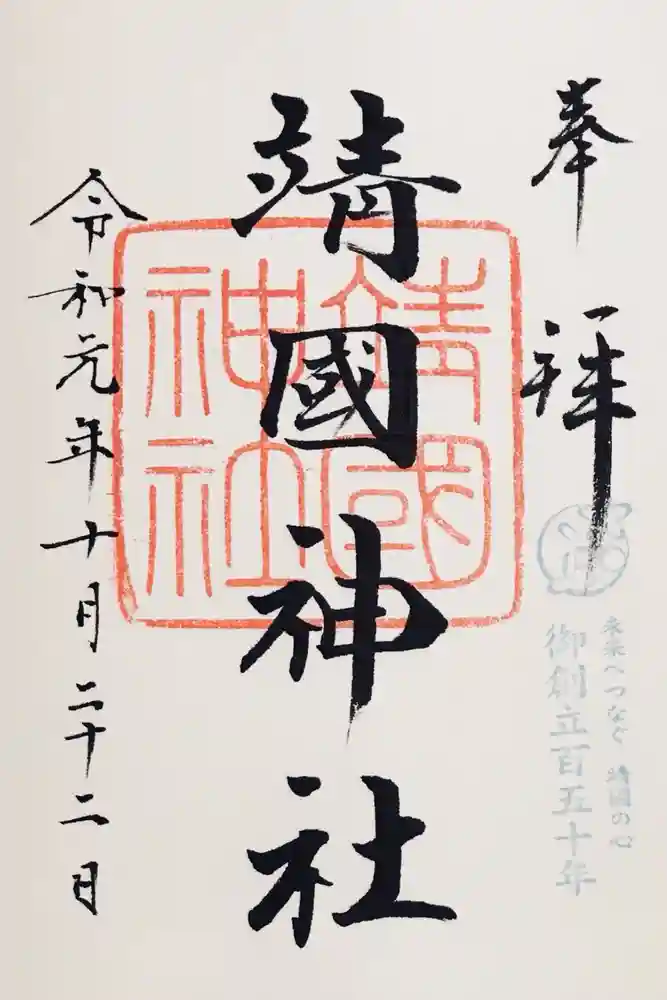 奉拝
未来へつなぐ 靖國の心
御創立百五十年
靖國神社
靖國
神社
令和元年十月二十二日